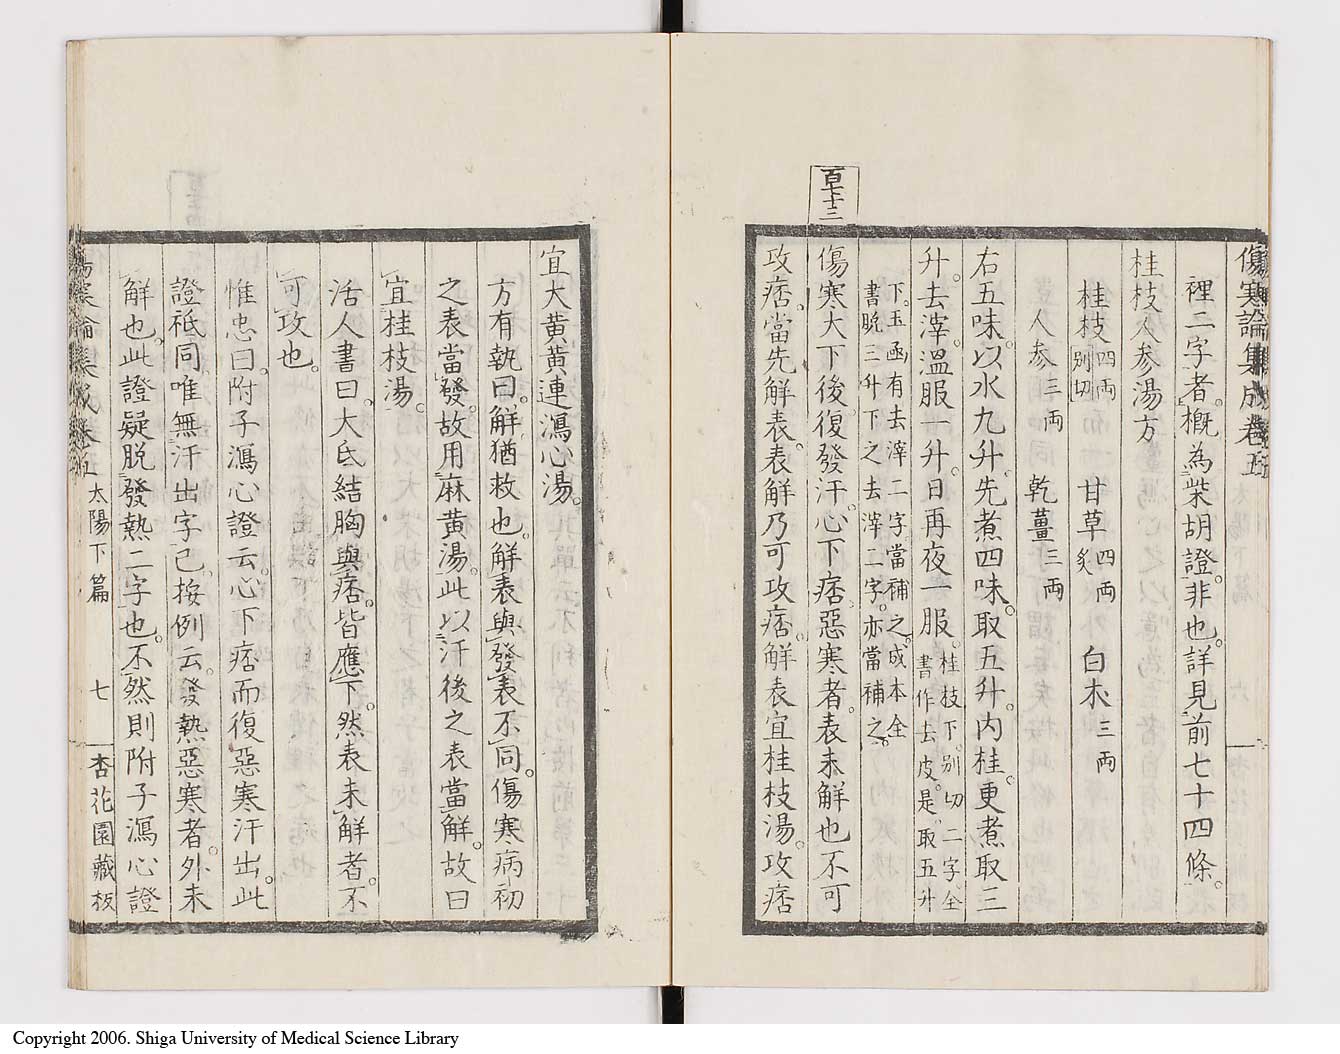 傷寒論集成卷五
裡二字者。概為柴胡證。非也。詳見前七十四條。
桂枝人参湯方
桂枝四両別切 甘草四両炙 白朮三両
人参三両 乾薑三両
右五味。以水九升。先煮四味。取五升。内桂。更煮取三
升。去滓。溫服一升。日再夜一服。桂枝下。別切二字。全書作去皮。是。取五升
下。玉函有去滓二字。當補之。成本全書晩三升下之去滓二字。亦當補之。
百七十三
傷寒大下後。復發汗。心下痞。惡寒者。表未解也。不可
攻痞。當先解表。表解乃可攻痞。解表宜桂枝湯。攻痞
宜大黄黄連瀉心湯。
方有執曰。解猶救也。解表與發表不同。傷寒病初
之表當發。故用麻黄湯。此以汗後之表當解。故曰
宜桂枝湯。
活人書曰。大氐結胸與痞。皆應下。然表未解者。不
可攻也。
惟忠曰。附子瀉心證云。心下痞。而復惡寒汗出。此
證祇同。唯無汗出字已。按例云。發熱惡寒者。外未
解也。此證疑脱發熱二字也。不然則附子瀉心證
傷寒論集成卷五 太陽下篇 七 杏花園藏板
Copyright 2006. Shiga University of Medical Science Library